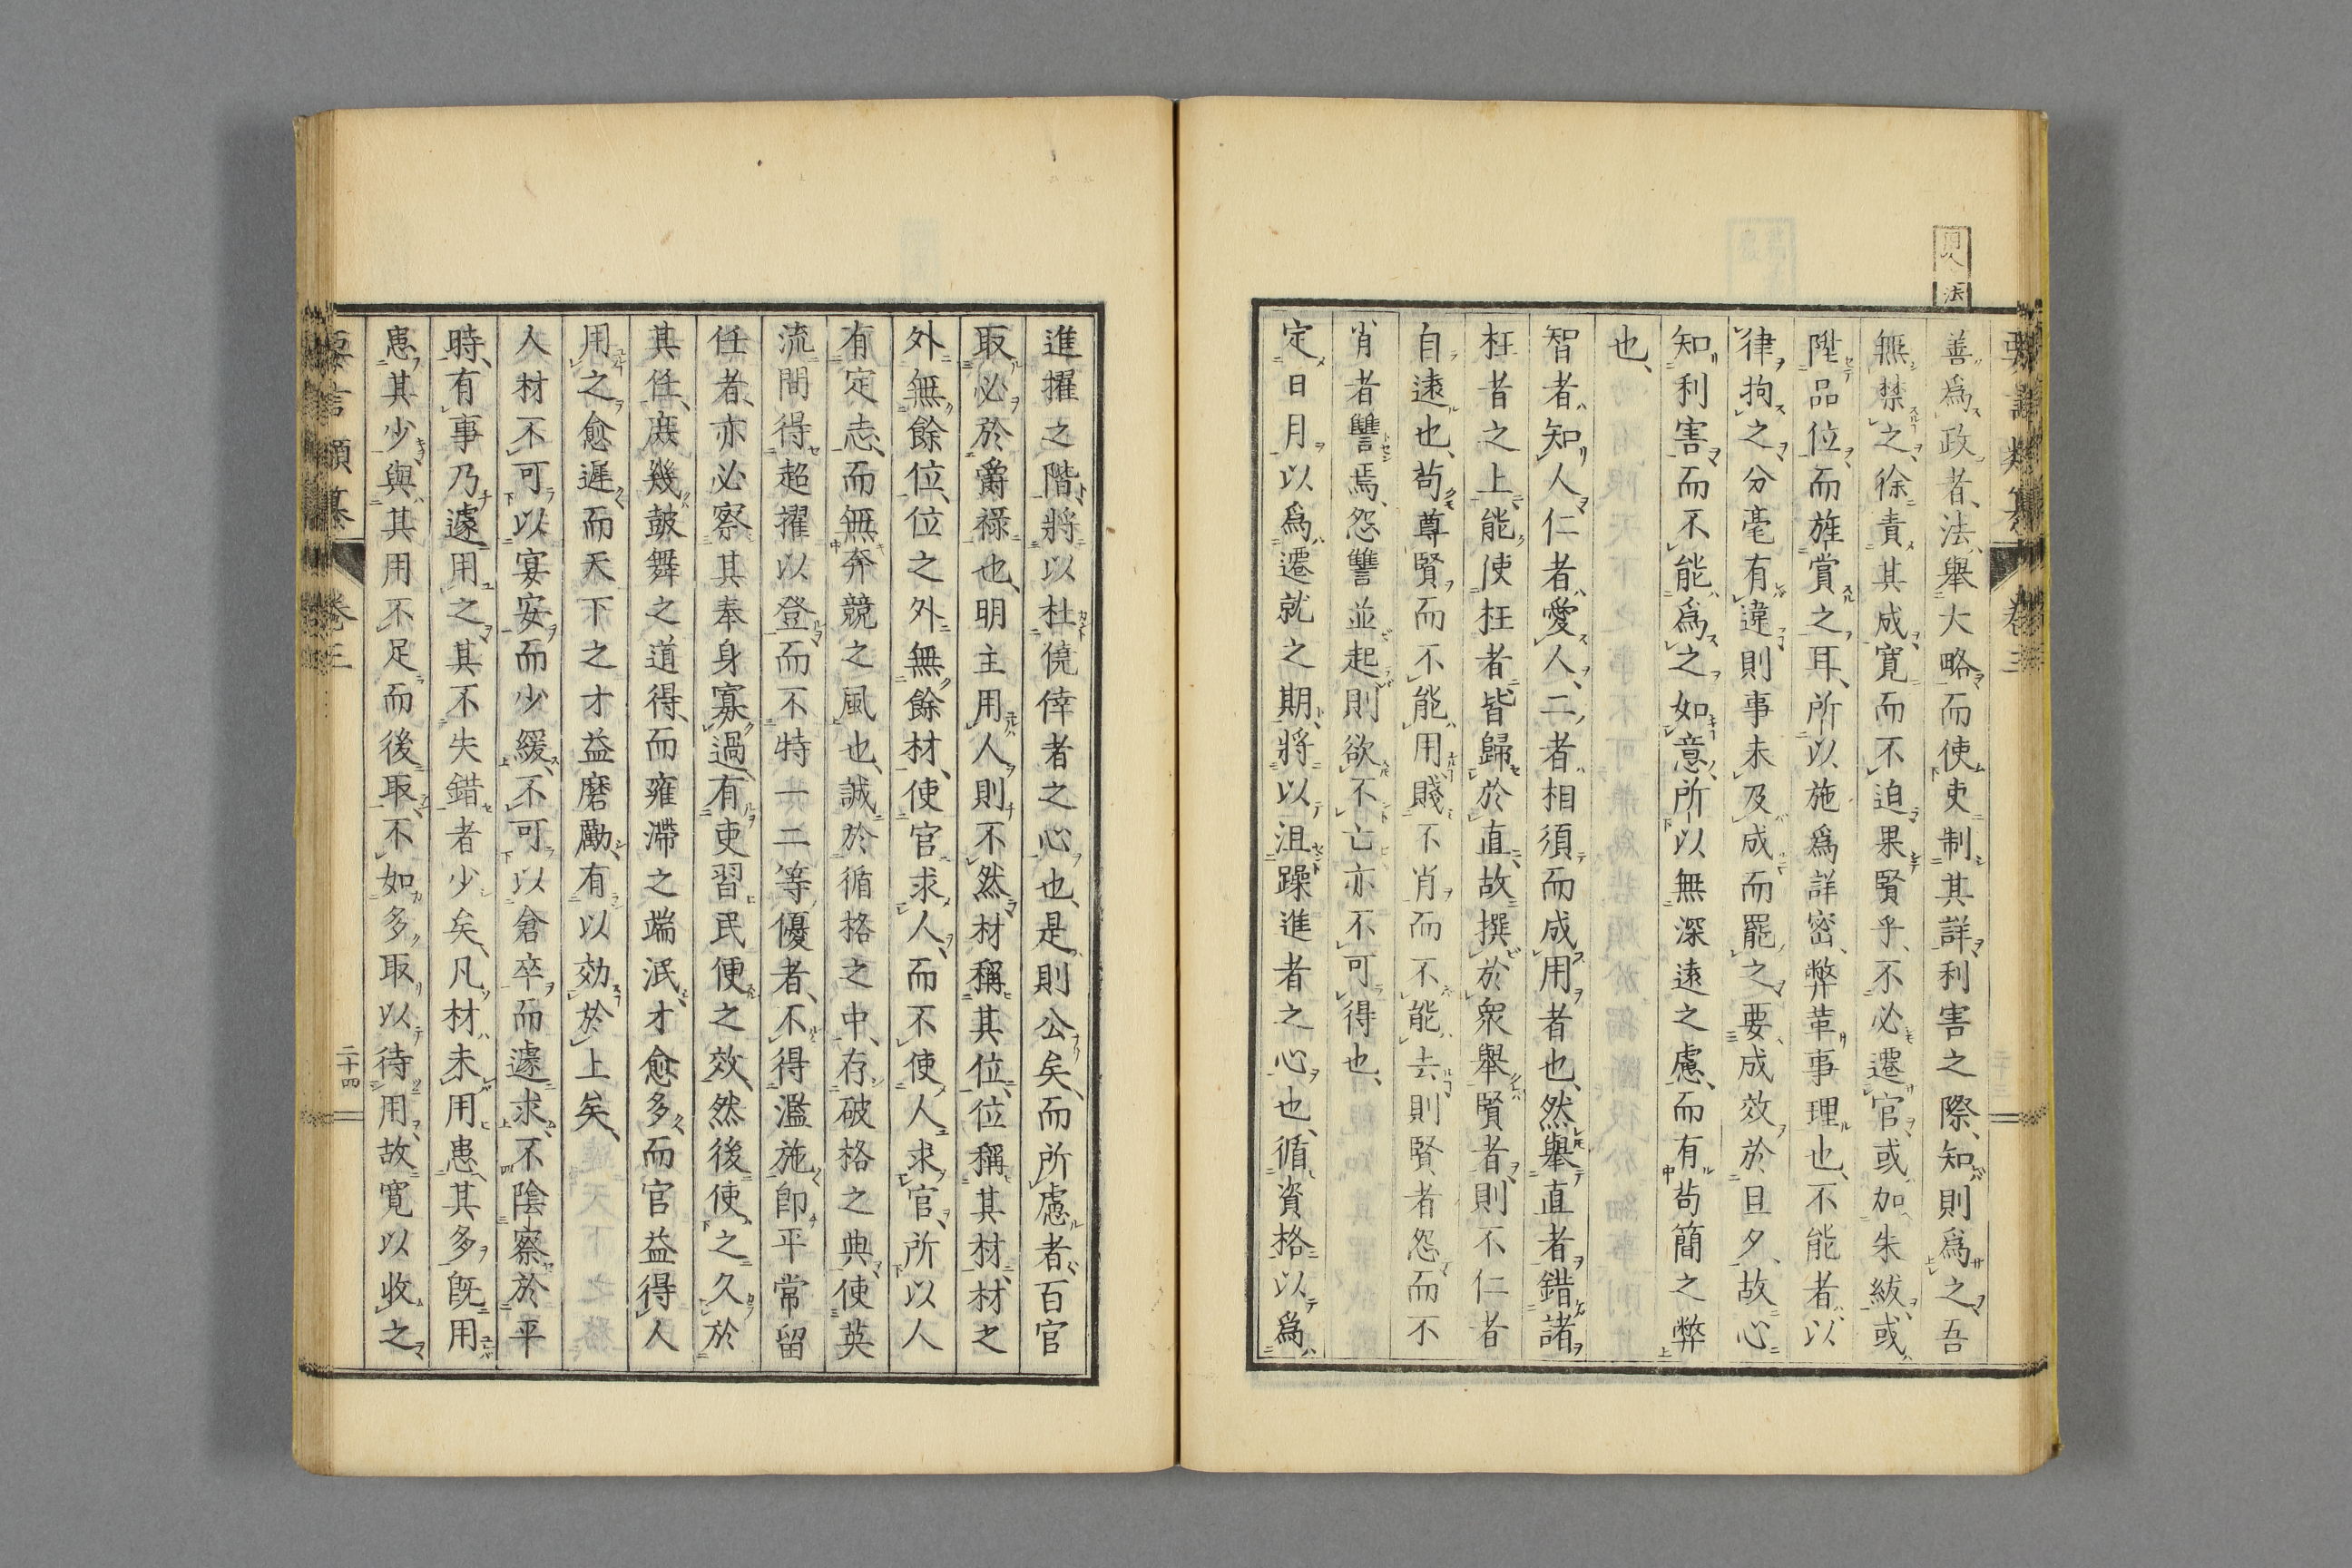 用人法
善爲政者、法擧大略而使吏制其詳利害之際、知則爲之吾
無禁之、徐責其成、寛而不迫果賢乎、不必遷官、或加朱紱、或
陞品位而旌賞之耳、所以施爲詳密、弊革事理也、不能者、以
律拘之分毫有違則事未及成而罷之要成效於旦夕、故心
知利害而不能爲之如意、所以無深遠之慮、而有苟簡之弊
也、
智者知人仁者愛人、二者相須而成用者也、然擧直者錯諸
枉者之上能使枉者皆歸於直、故撰於衆擧賢者、則不仁者
自遠也、苟尊賢而不能用賤不肖而不能去則賢者怨而不
肖者讐焉、怨讐並起則欲不亡亦不可得也、
定日月以爲遷就之期、將以沮躁進者之心也、循資格以爲
進擢之階、將以杜僥倖者之心也、是則公矣、而所慮者百官
取必於爵祿也、明主用人則不然材稱其位、位稱其材、材之
外無餘位、位之外無餘材、使官求人、而不使人求官、所以人
有定志、而無奔競之風也、誠於循格之中、存破格之典、使英
流間得超擢以登而不特一二等優者、不得濫施卽平常留
任者、亦必察其奉身寡過有吏習民便之效、然後使之久於
其任、庶幾鼓舞之道得、而雍滯之端泯才愈多而官益得人
用之愈遲而天下之才益磨勵有以効於上矣、
人材不可以宴安而少緩、不可以倉卒而遽求、不陰察於平
時、有事乃遽用之其不失錯者少矣、凡材未用患其多旣用
患其少與其用不足而後取不如多取以待用、故寛以收之
要言類纂 卷三
二十四